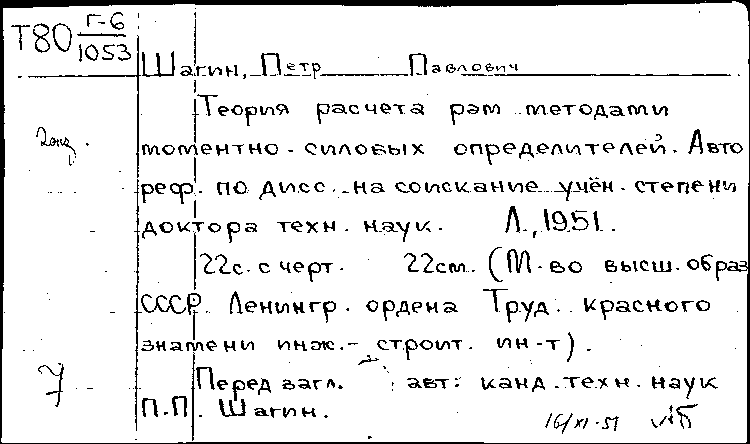 Т80 Г-6
1053
Шагин, Петр Павлович
Теория расчета рам методами
моментно-силовых определителей. Авто
реф. по дисс. на соискание учён. степени
доктора техн. наук. Л., 1951.
22с. с черт. 22см. (М-во высш. образ
СССР. Ленингр. ордена Труд. красного
знамени инж.-строит. ин-т).
7
Перед загл. авт: канд. техн. наук
П.П. Шагин.
16/XI-51